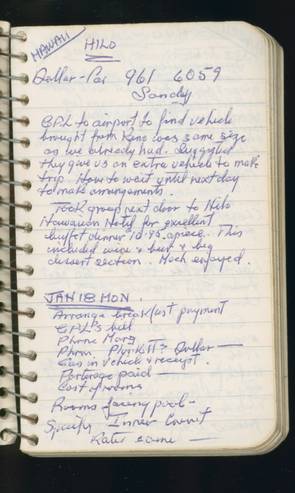 HAWAII
HILO
Dollar-Car 961 6059
Sandy
GPL to airport to find vehicle
brought from Kona was same size
as we already had. Suggested
they give us an extra vehicle to make
trip. Have to wait until next day
to make arrangements.
Took group next door to Hilo
Hawaiian Hotel for excellent
buffet dinner 10.95 apiece. This
included wine & beer & big
dessert section. Much enjoyed.
JAN 18 MON.
Arrange breakfast payment
GPL's bill
Phone Marg
Phone Plunkett's Dollar —
Gas in vehicle & receipt.
Porterage paid —
Cost of rooms
Rooms facing pool —
Specify Inner Court
Rates same —